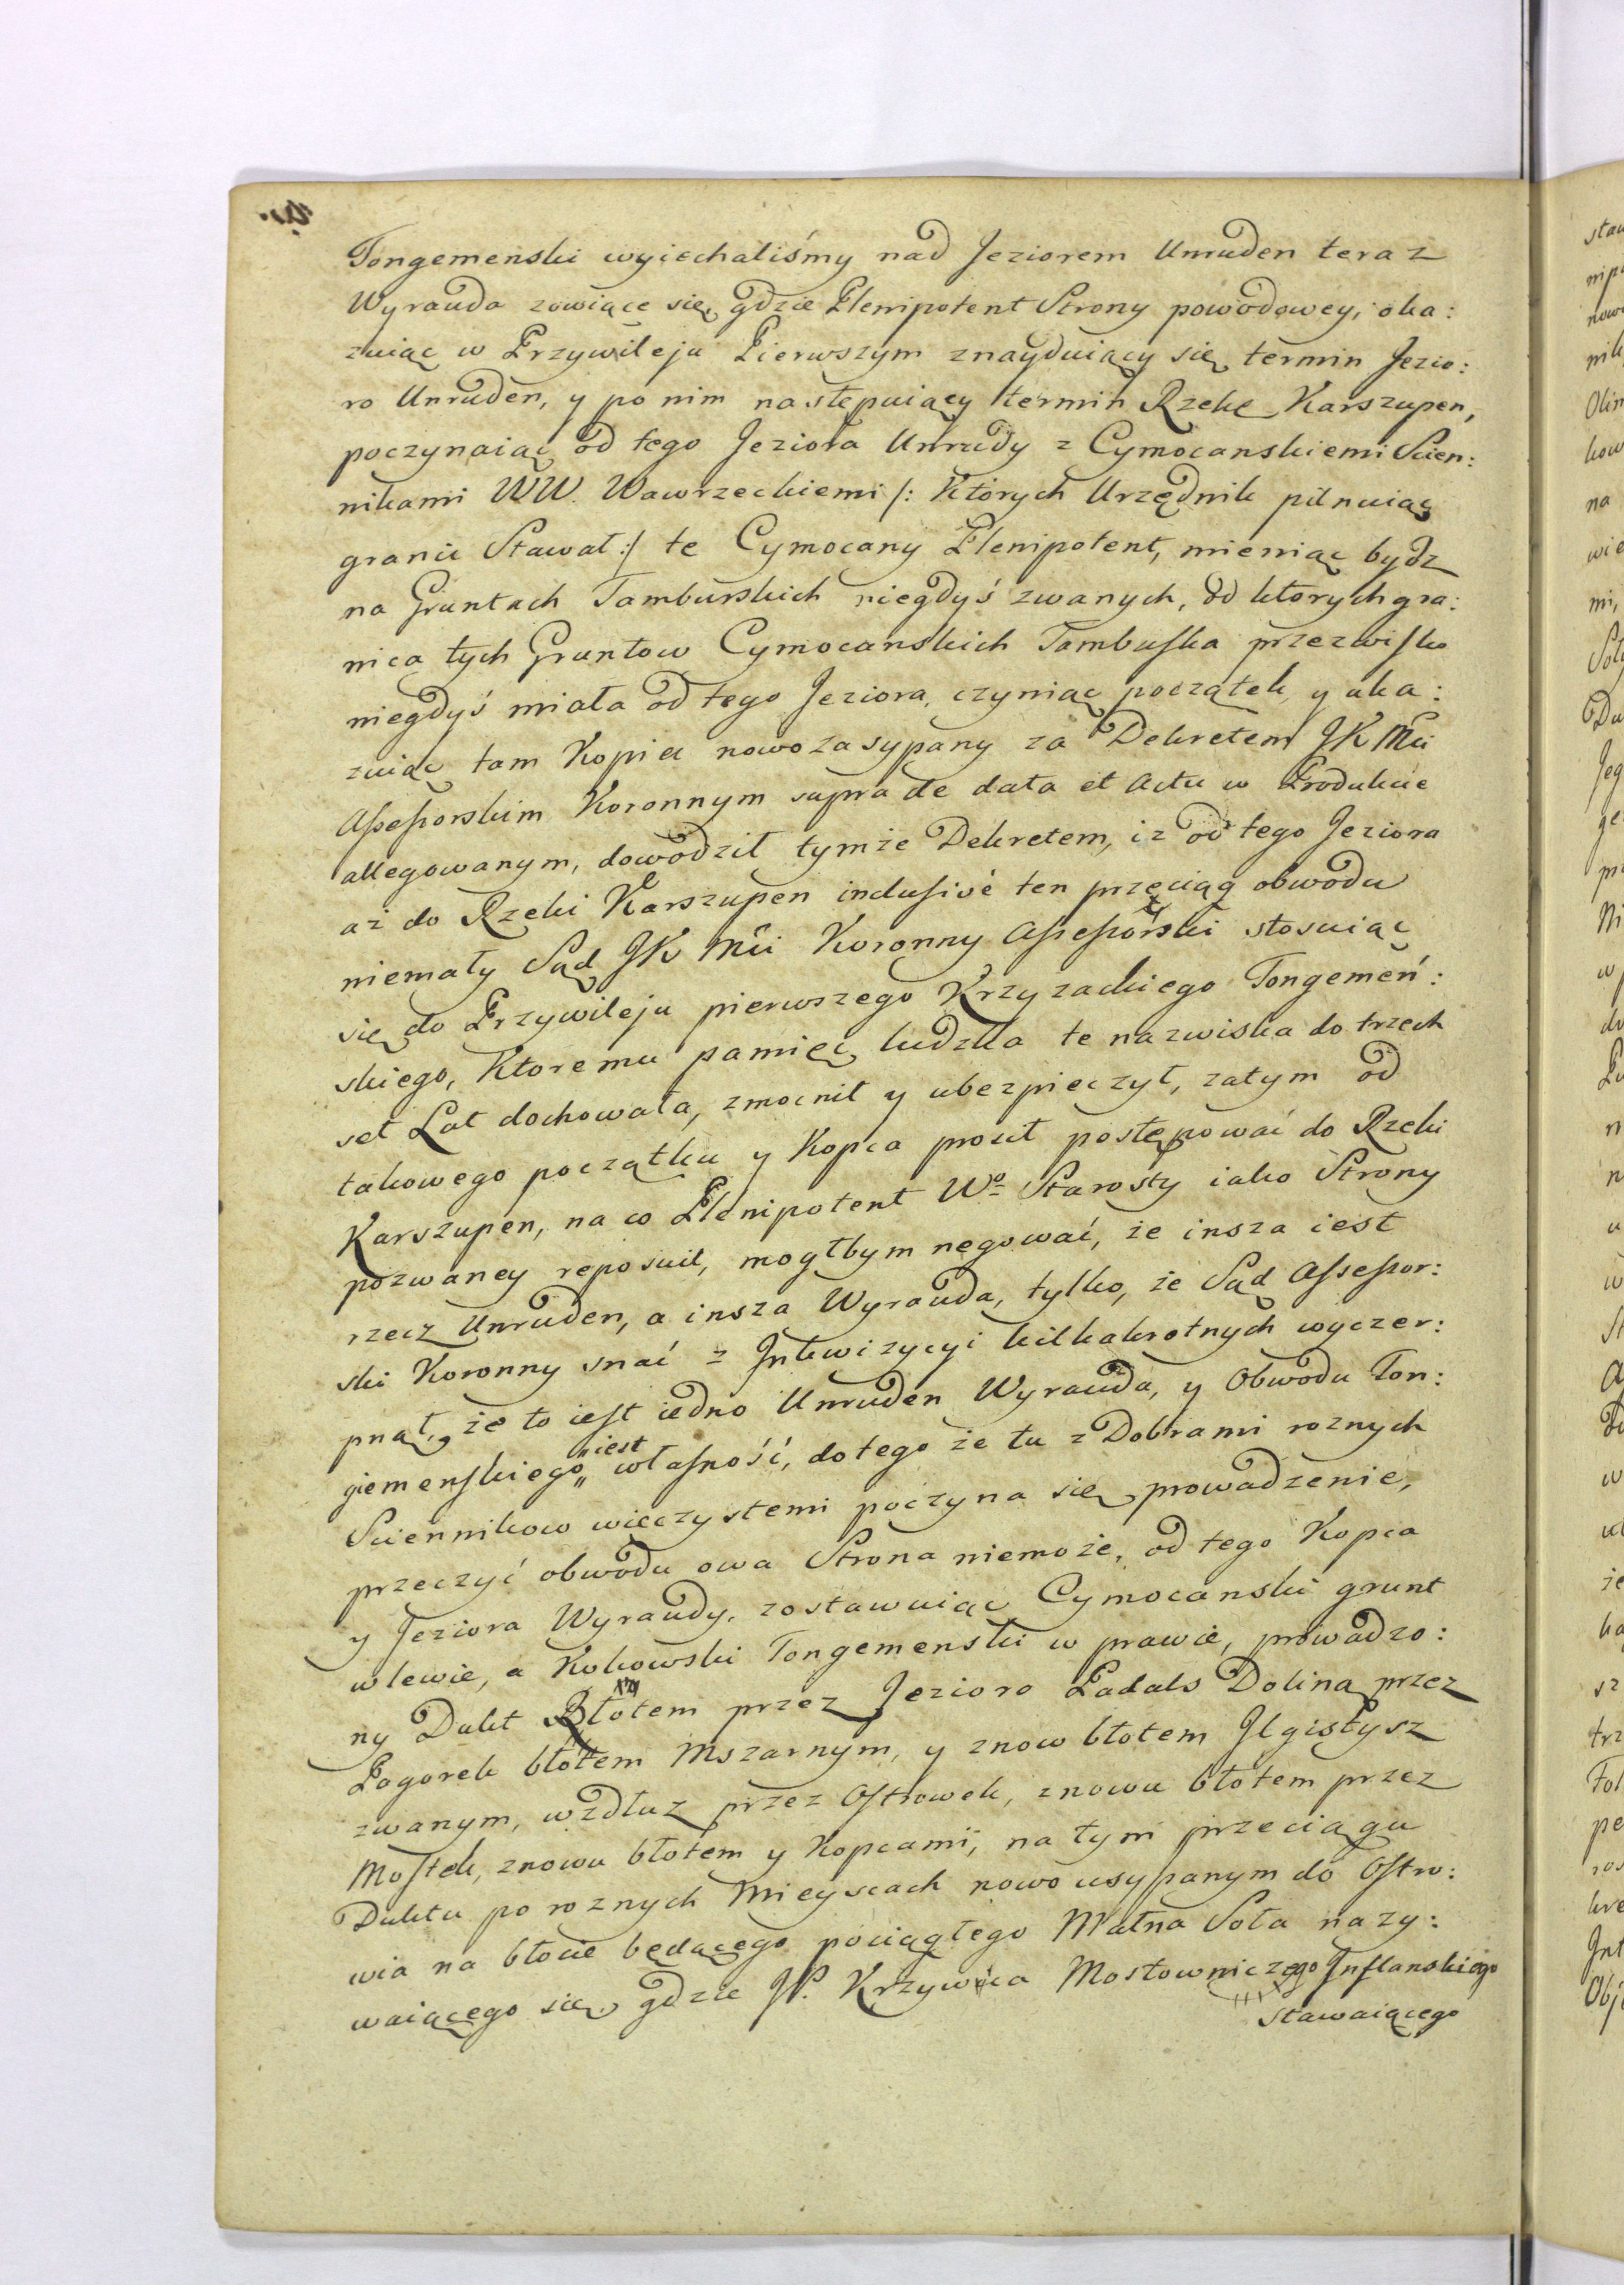 Tongemenski wyiechaliśmy nad Jeziorem Unruden teraz
Wyrauda zowiące się, gdzie Plenipotent Strony powodowey, oka:
zuiąc w Przywileju Pierwszym znayduiący się termin Jezio:
ro Unruden, y po nim następuiący termin Rzekę Karszupen,
poczynaiąc od tego Jeziora Unrudy z Cymocanskiemi Scien:
nikami WW. Wawrzeckiemi /: Których Urzędnik pilnuiąc
granic Stawał :/ te Cymocany Plenipotent, mieniąc bydz
na Gruntach Tamburskich niegdyś zwanych, od ktorych gra:
nica tych Gruntow Cymocanskich Tambuska przezwisko
niegdyś miała od tego Jeziora, czyniąc początek y uka:
zuiąc tam Kopiec nowo zasypany za Dekretem JK Mći
Assessorskim Koronnym supra de data et Actu w Produkcie
allegowanym, dowodził tymże Dekretem, iz od tego Jeziora
aż do Rzeki Karszupen inclusivé ten przeciąg obwodu
niemały Sąd JK Mći Koronny Assessorski stosuiąc
się do Przywileju pierwszego Krzyzackiego Tongemeń:
skiego, Ktoremu pamięć ludzka te nazwiska do trzech
set Lat dochowała, zmocnił y ubezpieczył, zatym od
takowego początku y Kopca prosił postępować do Rzeki
Karszupen, na co Plenipotent Wo Starosty iako Strony
pozwaney reposuit, mogłbym negować, że insza iest
rzecz Unruden, a insza Wyrauda, tylko, że Sąd Assessor:
ski Koronny snać z Inkwizycyi kilkakrotnych wyczer:
pnął, że to iest iedno Unruden Wyrauda, y Obwodu Ton:
giemenskiego iest własność, do tego że tu z Dobrami roznych
Sciennikow wieczystemi poczyna się prowadzenie,
przeczyć obwodu owa Strona niemoże, od tego Kopca
y Jeziora Wyraudy, zostawuiąc Cymocanski grunt
w lewie, a Kukowski Tongemenski w prawie, prowadzo:
ny Dukt Błotem przez Jezioro Padals Doliną przez
Pagorek błotem Mszarnym, y znow błotem Ilgistysz
zwanym, wzdłuz przez Ostrowek, znowu błotem przez
Mostek, znowu błotem y Kopcami, na tym przeciągu
Duktu po roznych Mieyscach nowo usypanym do Ostro:
wia na błocie będącego pociągłego Małna Soła nazy:
waiącego się, gdzie JP. Krzywca Mostowniczego Inflanskiego
Stawaiącego